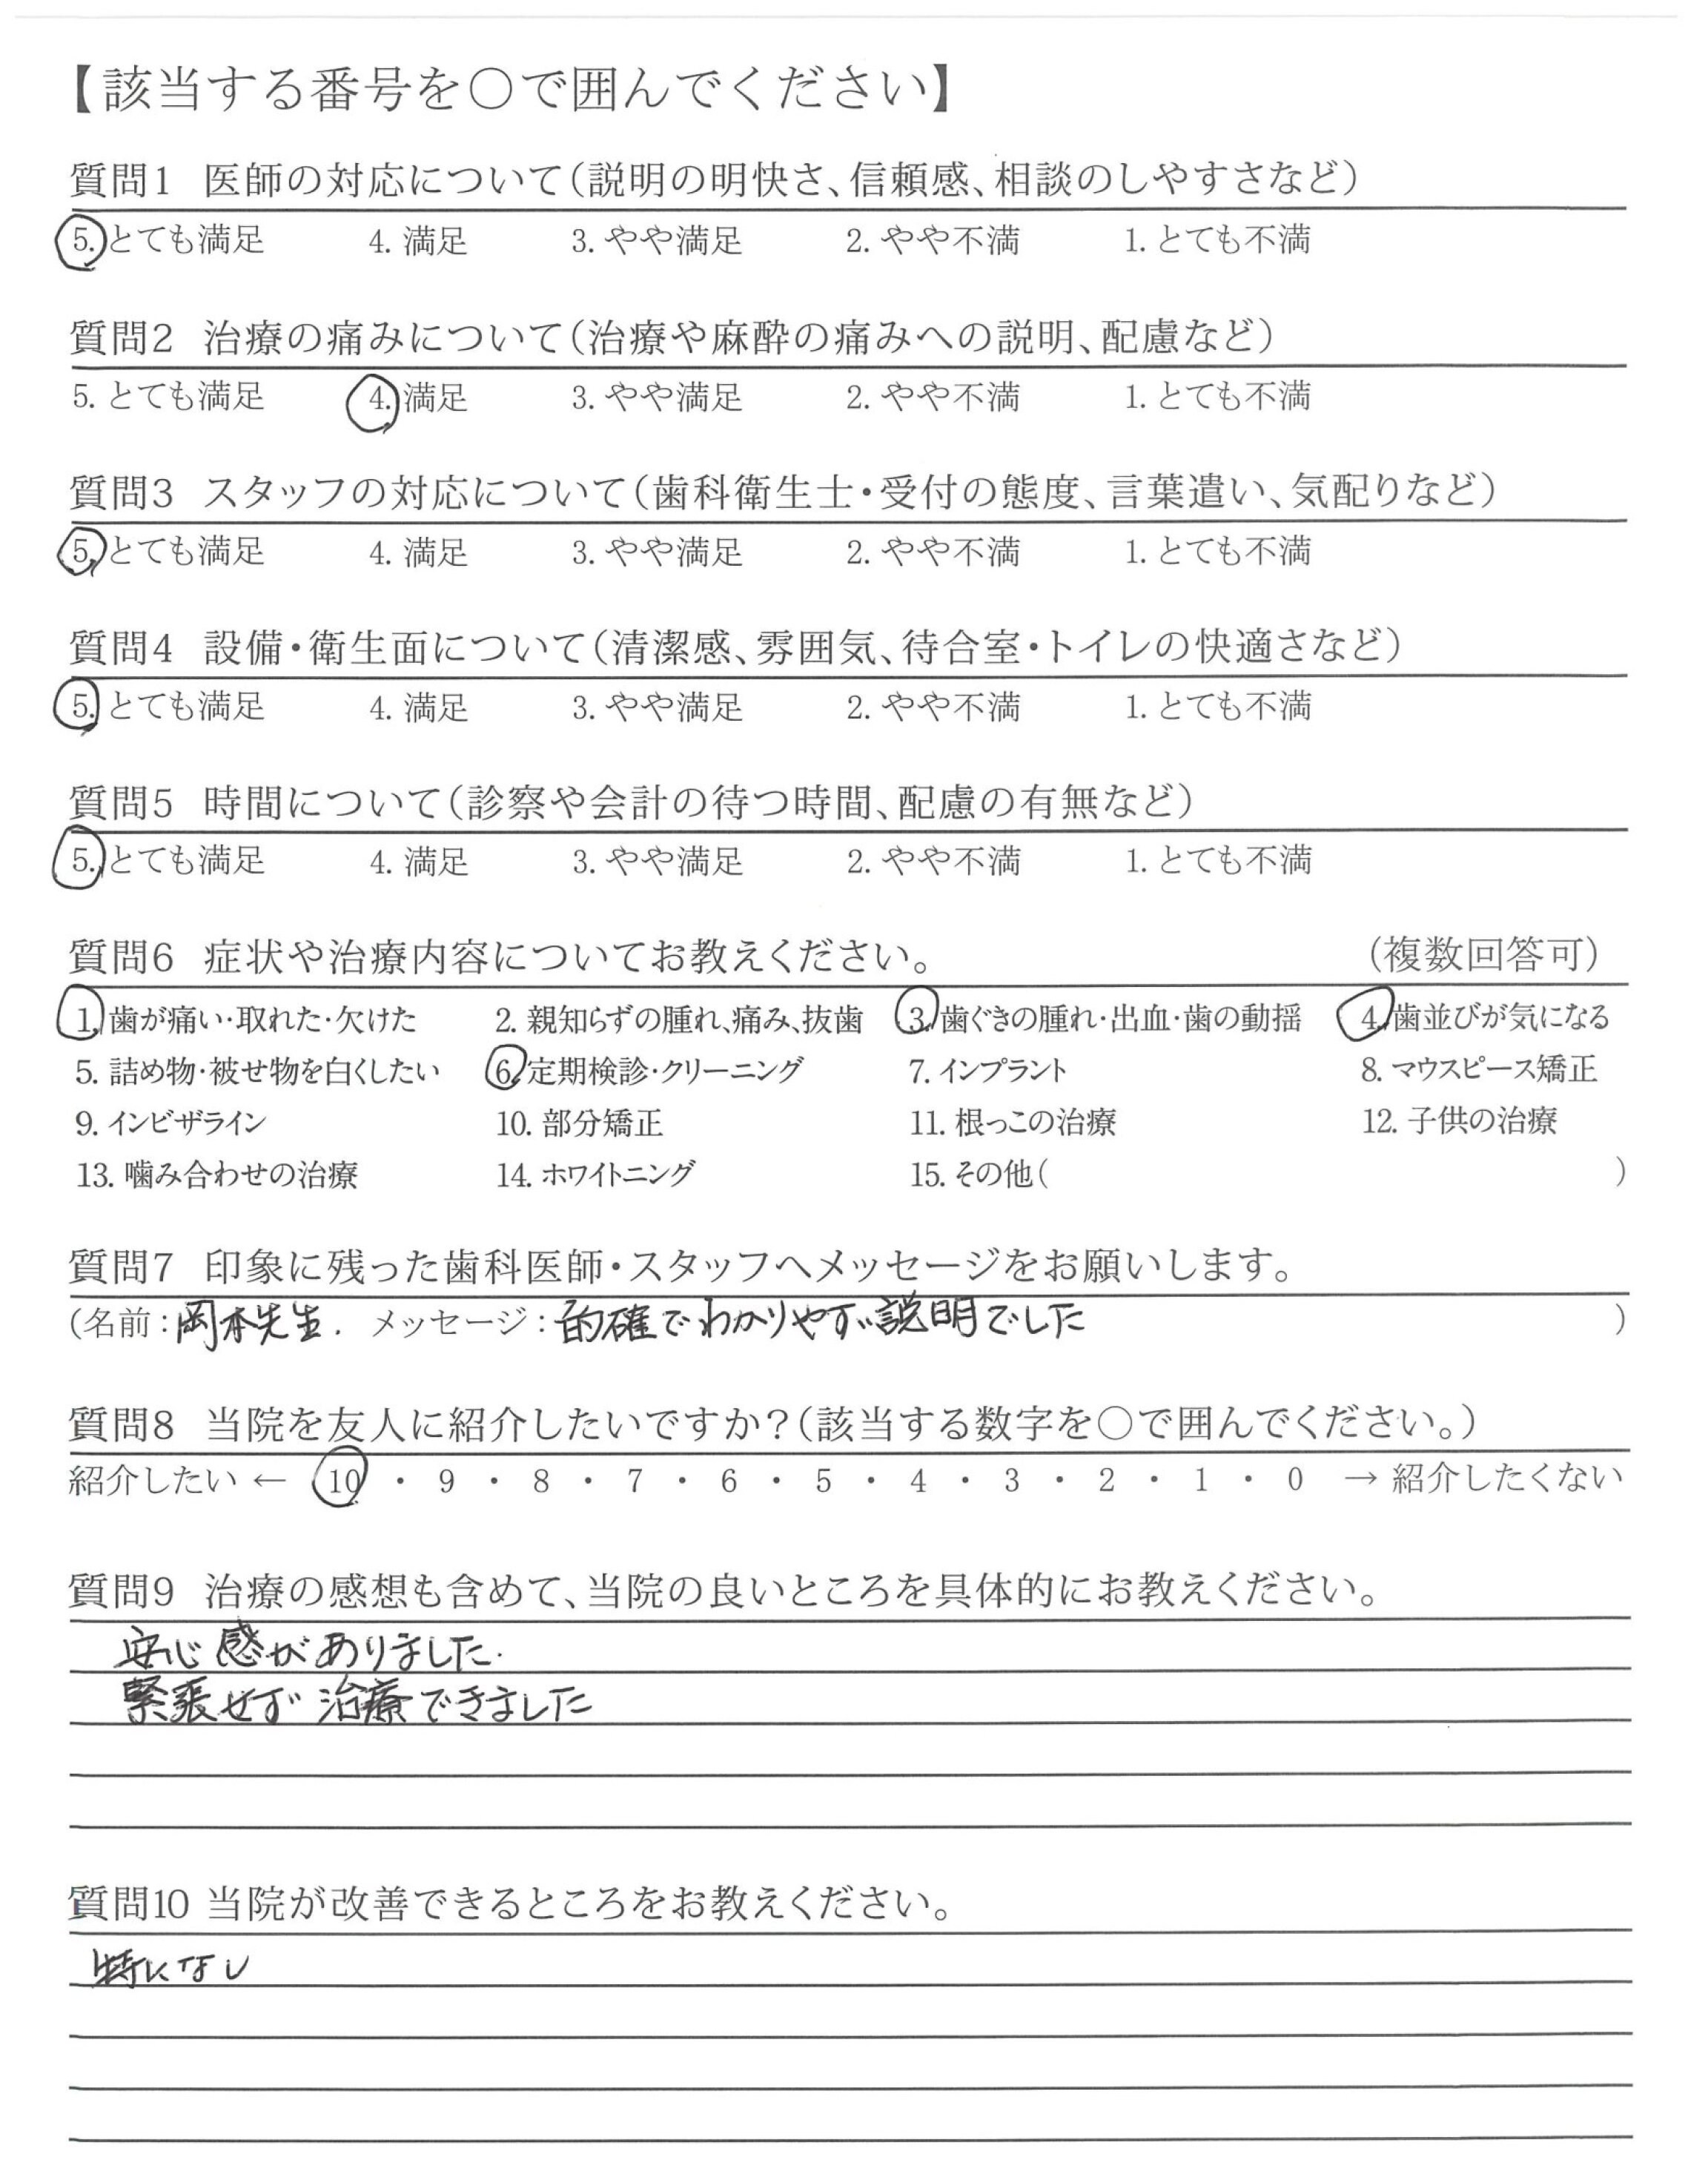 【該当する番号を○で囲んでください】
質問1 医師の対応について(説明の明快さ、信頼感、相談のしやすさなど)
5. とても満足 4. 満足 3. やや満足 2. やや不満 1. とても不満
質問2 治療の痛みについて(治療や麻酔の痛みへの説明、配慮など)
5. とても満足 4. 満足 3. やや満足 2. やや不満 1. とても不満
質問3 スタッフの対応について(歯科衛生士・受付の態度、言葉遣い、気配りなど)
5. とても満足 4. 満足 3. やや満足 2. やや不満 1. とても不満
質問4 設備・衛生面について(清潔感、雰囲気、待合室・トイレの快適さなど)
5. とても満足 4. 満足 3. やや満足 2. やや不満 1. とても不満
質問5 時間について(診察や会計の待つ時間、配慮の有無など)
5. とても満足 4. 満足 3. やや満足 2. やや不満 1. とても不満
質問6 症状や治療内容についてお教えください。 (複数回答可)
1. 歯が痛い・取れた・欠けた 2. 親知らずの腫れ、痛み、抜歯 3. 歯ぐきの腫れ・出血・歯の動揺 4. 歯並びが気になる
5. 詰め物・被せ物を白くしたい 6. 定期検診・クリーニング 7. インプラント 8. マウスピース矯正
9. インビザライン 10. 部分矯正 11. 根っこの治療 12. 子供の治療
13. 噛み合わせの治療 14. ホワイトニング 15. その他( )
質問7 印象に残った歯科医師・スタッフへメッセージをお願いします。
(名前:岡本先生. メッセージ:的確でわかりやすい説明でした )
質問8 当院を友人に紹介したいですか?(該当する数字を○で囲んでください。)
紹介したい ← 10 ・ 9 ・ 8 ・ 7 ・ 6 ・ 5 ・ 4 ・ 3 ・ 2 ・ 1 ・ 0 → 紹介したくない
質問9 治療の感想も含めて、当院の良いところを具体的にお教えください。
安心感がありました.
緊張せず治療できました
質問10 当院が改善できるところをお教えください。
特になし